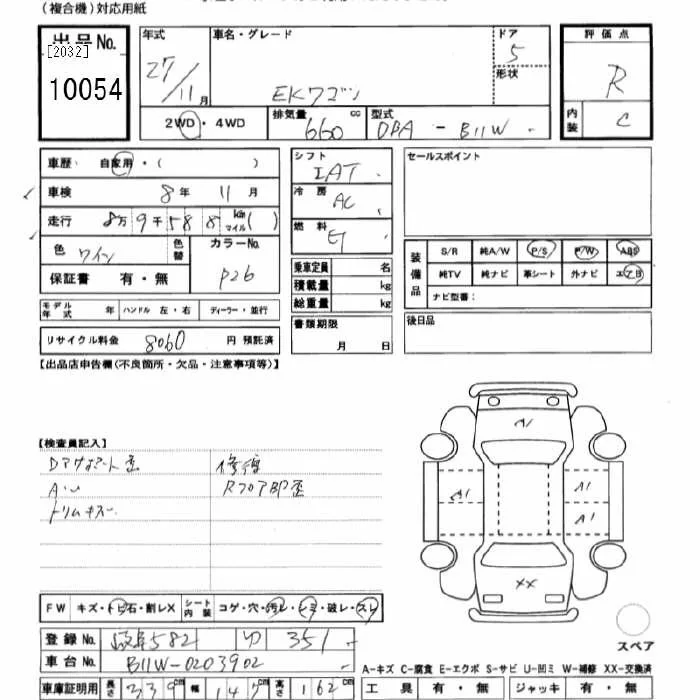 (複合機)対応用紙
出品No.
[2032]
10054
年式
27/11月
車名・グレード
EKワゴン
ドア
5
形状
評価点
R
内装
C
2WD・4WD
排気量
660 cc
型式
DBA - B11W
車歴: 自家用・( )
車検 8年 11月
走行 8万9千588 km マイル( )
色 ワイン
色替
カラーNo.
P26
保証書 有・無
モデル年式 年
ハンドル 左・右
ディーラー・並行
リサイクル料金 8060 円 預託済
シフト
IAT
冷房
AC
燃料
乗車定員 名
積載量 kg
総重量 kg
書類期限
月 日
セールスポイント
装備品
S/R 純A/W P/S P/W ABS
純TV 純ナビ 革シート 外ナビ エアB
ナビ型番:
後日品
【出品店申告欄(不良箇所・欠品・注意事項等)】
【検査員記入】
修復
Rフロア部歪
トリムキズ
A1
A1
A1
A1
XX
FW キズ・トビ石・割レX
シート内装 コゲ・穴・汚レ・シミ・破レ・スレ
登録No. 岐阜582 り 351
車台No. B11W-0203902
スペア
A-キズ C-腐食 E-エクボ S-サビ U-凹ミ W-補修 XX-交換済
車庫証明用 長さ 339cm 幅 147cm 高さ 162cm
工具 有・無 ジャッキ 有・無